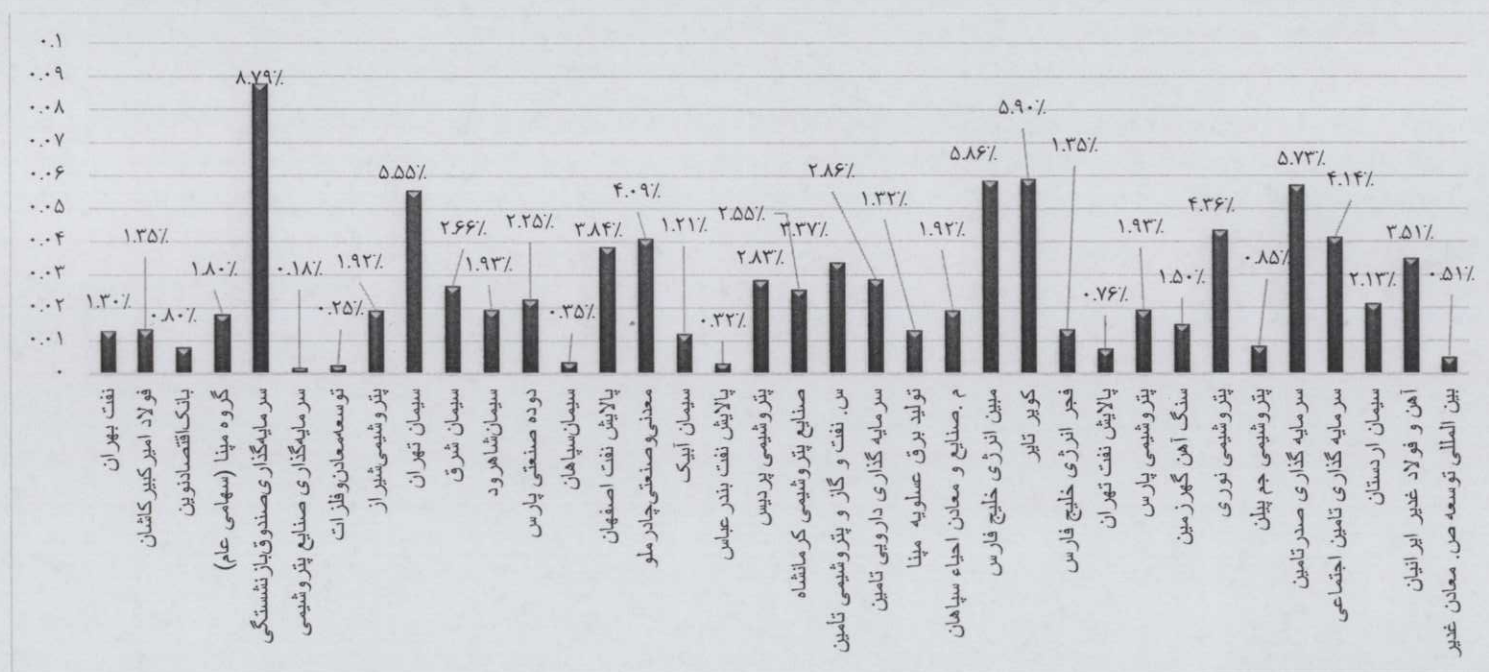 ۰.۱
۰.۰۹
۰.۰۸
۰.۰۷
۰.۰۶
۰.۰۵
۰.۰۴
۰.۰۳
۰.۰۲
۰.۰۱
۰
۱.۳۰٪
۱.۳۵٪
۰.۸۰٪
۱.۸۰٪
۸.۷۹٪
۰.۱۸٪
۰.۲۵٪
۱.۹۲٪
۵.۵۵٪
۲.۶۶٪
۱.۹۳٪
۲.۲۵٪
۰.۳۵٪
۳.۸۴٪
۴.۰۹٪
۱.۲۱٪
۰.۳۲٪
۲.۸۳٪
۲.۵۵٪
۳.۳۷٪
۲.۸۶٪
۱.۳۲٪
۱.۹۲٪
۵.۸۶٪
۵.۹۰٪
۱.۳۵٪
۰.۷۶٪
۱.۹۳٪
۱.۵۰٪
۴.۳۶٪
۰.۸۵٪
۵.۷۳٪
۴.۱۴٪
۲.۱۳٪
۳.۵۱٪
۰.۵۱٪
نفت بهران
فولاد امیرکبیرکاشان
بانک‌اقتصادنوین
گروه مپنا (سهامی عام)
سرمایه‌گذاری‌صندوق‌بازنشستگی
سرمایه‌گذاری صنایع پتروشیمی
توسعه‌معادن‌وفلزات
پتروشیمی‌شیراز
سیمان تهران
سیمان شرق
سیمان‌شاهرود
دوده صنعتی پارس
سیمان‌سپاهان
پالایش نفت اصفهان
معدنی‌وصنعتی‌چادرملو
سیمان آبیک
پالایش نفت بندرعباس
پتروشیمی پردیس
صنایع پتروشیمی کرمانشاه
س. نفت و گاز و پتروشیمی تأمین
سرمایه گذاری دارویی تامین
تولید برق عسلویه مپنا
م .صنایع و معادن احیاء سپاهان
مبین انرژی خلیج فارس
کویر تایر
فجر انرژی خلیج فارس
پالایش نفت تهران
پتروشیمی پارس
سنگ آهن گهرزمین
پتروشیمی نوری
پتروشیمی جم پیلن
سرمایه گذاری صدرتامین
سرمایه گذاری تامین اجتماعی
سیمان اردستان
آهن و فولاد غدیر ایرانیان
بین المللی توسعه ص. معادن غدیر